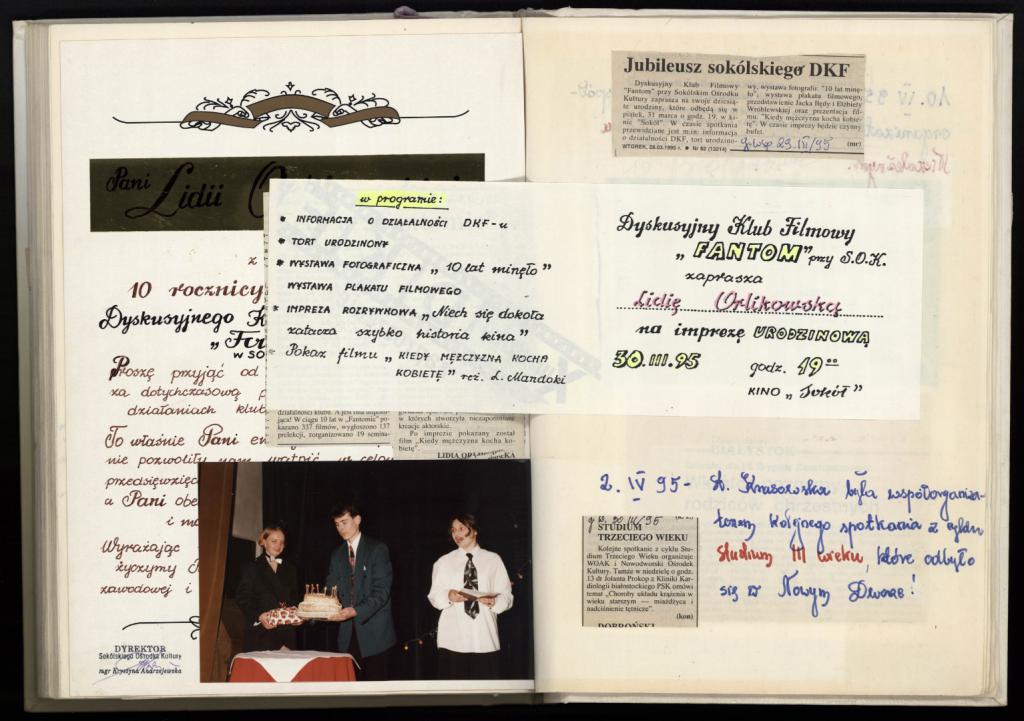 Pani
Lidii
z
10 rocznicy
Dyskusyjnego K
"Fa
W SO
Proszę przyjąć od
za dotychczasową p
działaniach klub
To właśnie Pani en
nie pozwoliły nam wątpić w celow
przedsięwzięc
a Pani obe
i m
Wyrażając
życzymy
zawodowej i
DYREKTOR
Sokólskiego Ośrodka Kultury
mgr Krystyna Andrzejewska
w programie:
* INFORMACJA O DZIAŁALNOŚCI DKF-u
* TORT URODZINOWY
* WYSTAWA FOTOGRAFICZNA „10 lat minęło"
WYSTAWA PLAKATU FILMOWEGO
* IMPREZA ROZRYWKOWA „Niech się dokoła
zatacza szybko historia kina"
* Pokaz filmu „KIEDY MĘŻCZYZNA KOCHA
KOBIETĘ" reż. L. Mandoki
działalności klubu. A jest ona imponu-
jąca! W ciągu 10 lat w „Fantomie" po-
kazano 337 filmów, wygłoszono 137
prelekcji, zorganizowano 19 semina-
w których stworzyła niezapomniane
kreacje aktorskie.
Po imprezie pokazany został
film „Kiedy mężczyzna kocha ko-
bietę".
Jubileusz sokólskiego DKF
Dyskusyjny Klub Filmowy
"Fantom" przy Sokólskim Ośrodku
Kultury zaprasza na swoje dziesią-
te urodziny, które odbędą się w
piątek, 31 marca o godz. 19, w ki-
nie "Sokół". W czasie spotkania
przewidziane jest m.in: informacja
o działalności DKF, tort urodzino-
wy, wystawa fotografii: "10 lat minę-
ło", wystawa plakatu filmowego,
przedstawienie Jacka Będy i Elżbiety
Wróblewskiej oraz prezentacja fil-
mu. "Kiedy mężczyzna kocha kobie-
tę". W czasie imprezy będzie czynny
bufet.
(mr)
WTOREK, 28.03.1995 r. • Nr 62 (13214)
Dyskusyjny Klub Filmowy
„FANTOM" przy S.O.K.
zaprasza
Lidię Orlikowską
na imprezę URODZINOWĄ
30.III.95 godz. 19⁰⁰
KINO „Sokół"
2. IV 95- A. Krasowska była współorganiza-
torem kolejnego spotkania z cyklu
Studium III wieku, które odbyło
się w Nowym Dworze!
30 III/95
STUDIUM
TRZECIEGO WIEKU
Kolejne spotkanie z cyklu Stu-
dium Trzeciego Wieku organizuje
WOAK i Nowodworski Ośrodek
Kultury. Tamże w niedzielę o godz.
13 dr Jolanta Prokop z Kliniki Kar-
diologii białostockiego PSK omówi
temat „Choroby układu krążenia w
wieku starszym — miażdżyca i
nadciśnienie tętnicze".
(kon)